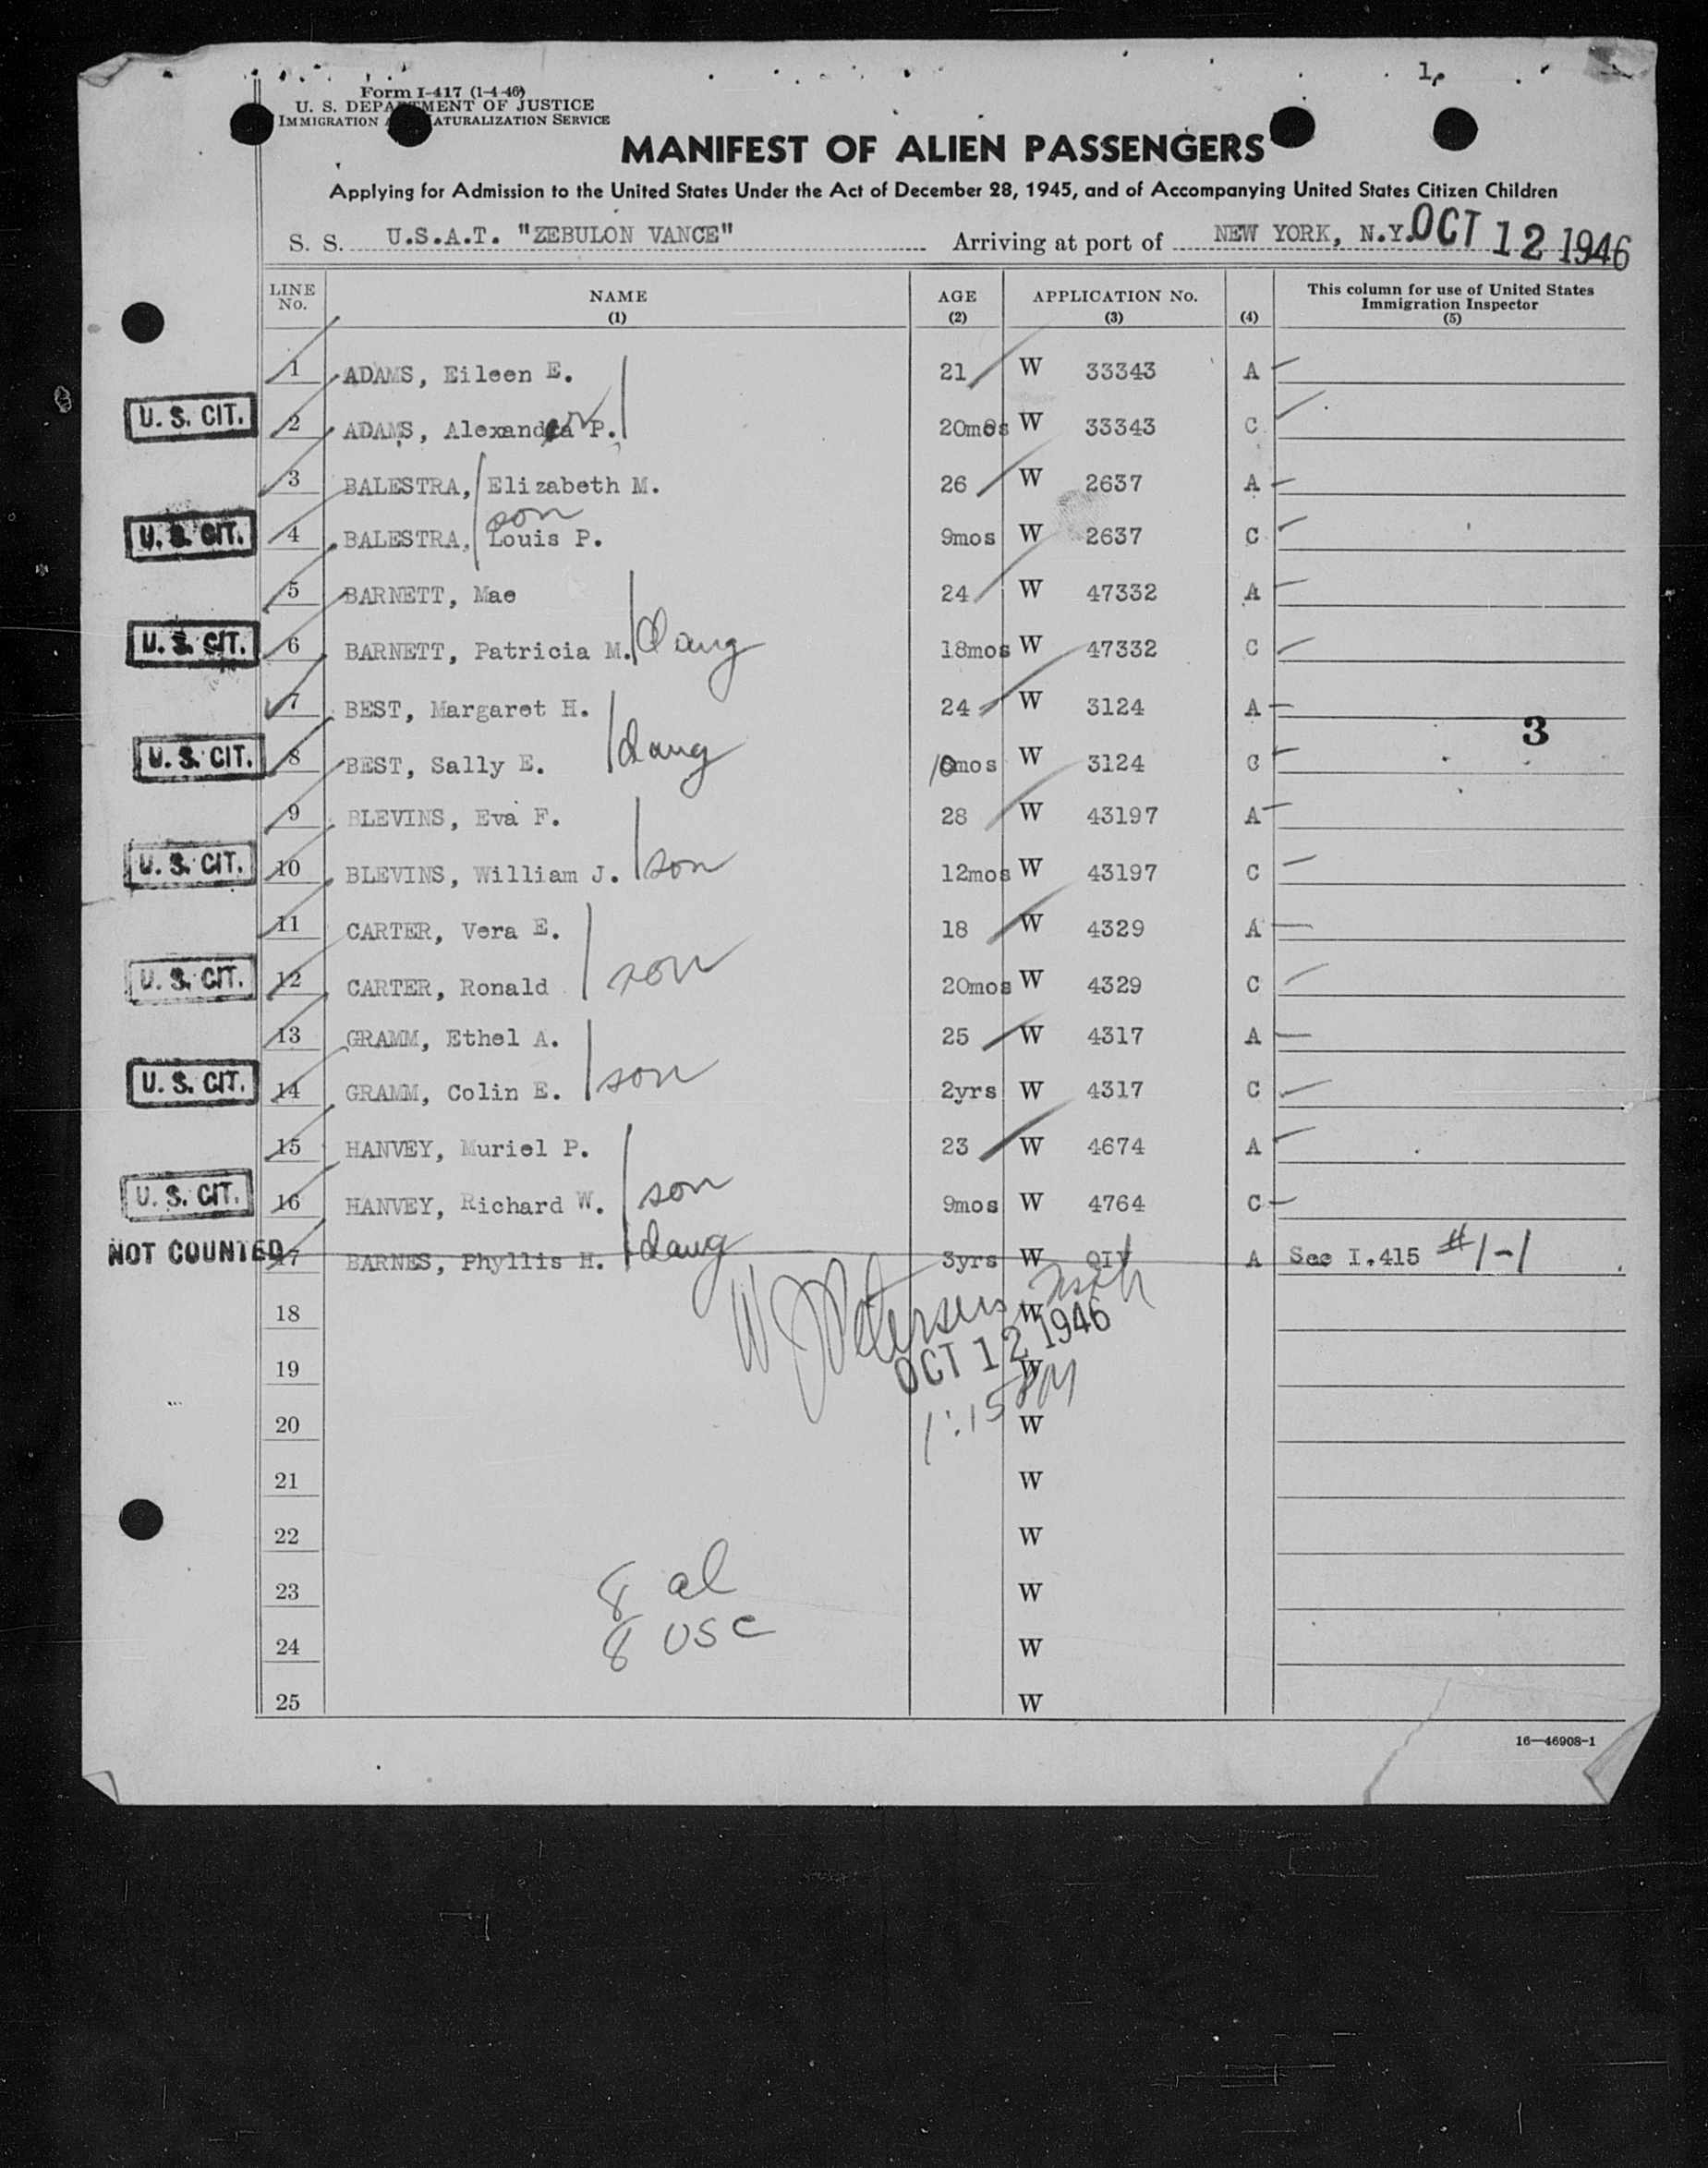 1
Form I-417 (1-4-46)
U. S. DEPARTMENT OF JUSTICE
IMMIGRATION NATURALIZATION SERVICE
MANIFEST OF ALIEN PASSENGERS
Applying for Admission to the United States Under the Act of December 28, 1945, and of Accompanying United States Citizen Children
S. S. U.S.A.T. "ZEBULON VANCE" Arriving at port of NEW YORK, N.Y. OCT 12 1946
LINE No. NAME (1) AGE (2) APPLICATION No. (3) (4) This column for use of United States Immigration Inspector (5)
1 ADAMS, Eileen E. 21 W 33343 A
U. S. CIT. 2 ADAMS, Alexander P. 20mos W 33343 C
3 BALESTRA, Elizabeth M. 26 W 2637 A
U. S. CIT. 4 BALESTRA, Louis P. son 9mos W 2637 C
5 BARNETT, Mae 24 W 47332 A
U. S. CIT. 6 BARNETT, Patricia M. daug 18mos W 47332 C
7 BEST, Margaret H. 24 W 3124 A
3
U. S. CIT. 8 BEST, Sally E. daug 10mos W 3124 C
9 BLEVINS, Eva F. 28 W 43197 A
U. S. CIT. 10 BLEVINS, William J. son 12mos W 43197 C
11 CARTER, Vera E. 18 W 4329 A
U. S. CIT. 12 CARTER, Ronald son 20mos W 4329 C
13 GRAMM, Ethel A. 25 W 4317 A
U. S. CIT. 14 GRAMM, Colin E. son 2yrs W 4317 C
15 HANVEY, Muriel P. 23 W 4674 A
U. S. CIT. 16 HANVEY, Richard W. son 9mos W 4764 C
NOT COUNTED 17 BARNES, Phyllis H. daug 3yrs W QIV A See I.415 #1-1
18 W
OCT 12 1946
19 W
1:15 PM
20 W
21 W
22 W
23 8 al W
24 8 USC W
25 W
16—46908-1